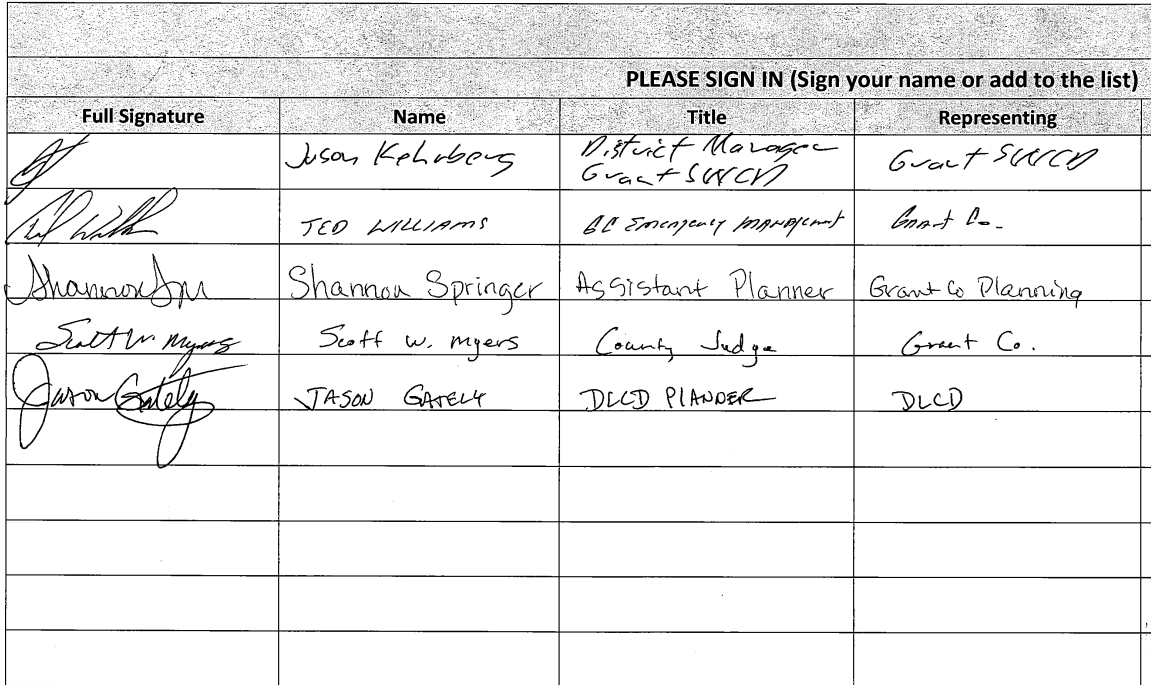 PLEASE SIGN IN (Sign your name or add to the list)
Full Signature Name Title Representing
Jason Kehrberg District Manager Grant SWCD
Grant SWCD
Ted Will TED WILLIAMS GC Emergency MANAgement Grant Co.
Shannon Spr Shannon Springer Assistant Planner Grant Co Planning
Scott W. Myers Scott W. Myers County Judge Grant Co.
Jason Gately JASON GATELY DLCD PLANNER DLCD